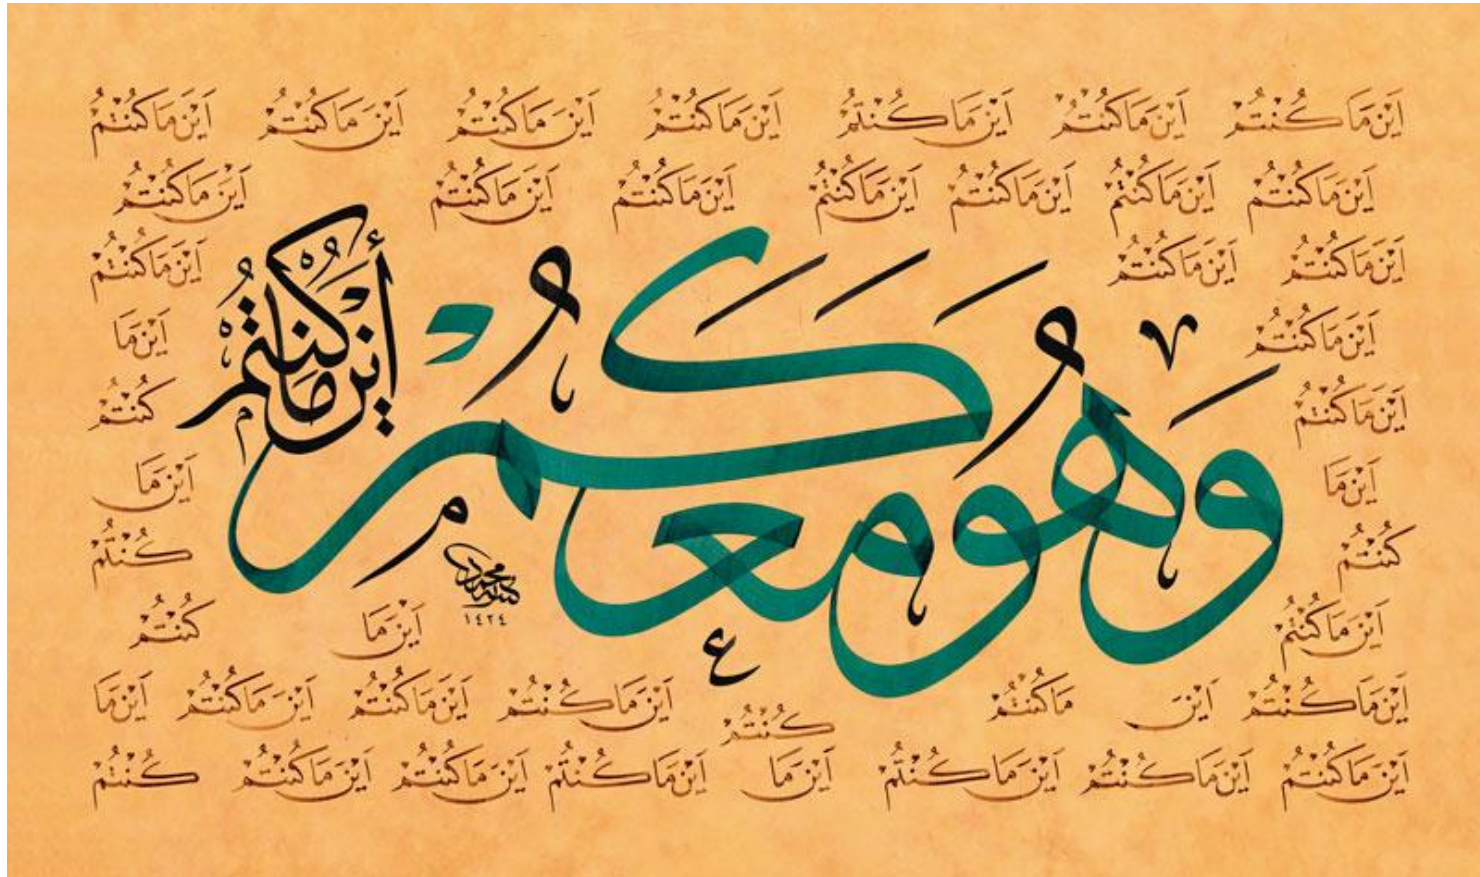 وَهُوَ مَعَكُمْ أَيْنَ مَا كُنْتُمْ
اَيْنَ مَا كُنْتُمْ اَيْنَ مَا كُنْتُمْ اَيْنَ مَا كُنْتُمْ اَيْنَ مَا كُنْتُمْ اَيْنَ مَا كُنْتُمْ اَيْنَ مَا كُنْتُمْ اَيْنَ مَا كُنْتُمْ
اَيْنَ مَا كُنْتُمْ اَيْنَ مَا كُنْتُمْ اَيْنَ مَا كُنْتُمْ اَيْنَ مَا كُنْتُمْ اَيْنَ مَا كُنْتُمْ اَيْنَ مَا كُنْتُمْ اَيْنَ مَا كُنْتُمْ
اَيْنَ مَا كُنْتُمْ اَيْنَ مَا كُنْتُمْ اَيْنَ مَا كُنْتُمْ
اَيْنَ مَا كُنْتُمْ اَيْنَ مَا
اَيْنَ مَا كُنْتُمْ كُنْتُمْ
اَيْنَ مَا اَيْنَ مَا
كُنْتُمْ كُنْتُمْ
اَيْنَ مَا كُنْتُمْ اَيْنَ مَا كُنْتُمْ
اَيْنَ مَا كُنْتُمْ اَيْنَ مَا كُنْتُمْ اَيْنَ مَا كُنْتُمْ اَيْنَ مَا كُنْتُمْ اَيْنَ مَا كُنْتُمْ اَيْنَ مَا
كُنْتُمْ
اَيْنَ مَا كُنْتُمْ اَيْنَ مَا كُنْتُمْ اَيْنَ مَا كُنْتُمْ اَيْنَ مَا اَيْنَ مَا كُنْتُمْ اَيْنَ مَا كُنْتُمْ اَيْنَ مَا كُنْتُمْ كُنْتُمْ
١٤٢٤